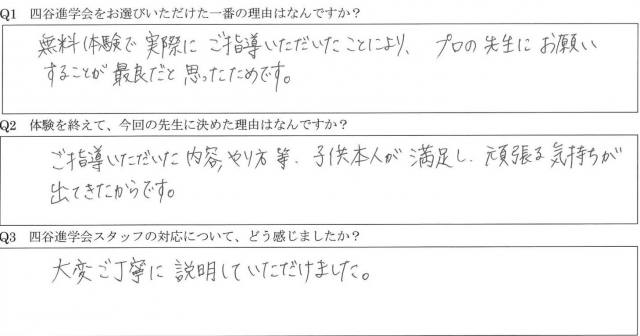 Q1 四谷進学会をお選びいただけた一番の理由はなんですか？
無料体験で実際にご指導いただいたことにより、プロの先生にお願い
することが最良だと思ったためです。
Q2 体験を終えて、今回の先生に決めた理由はなんですか？
ご指導いただいた内容、やり方等、子供本人が満足し、頑張る気持ちが
出てきたからです。
Q3 四谷進学会スタッフの対応について、どう感じましたか？
大変ご丁寧に説明していただけました。